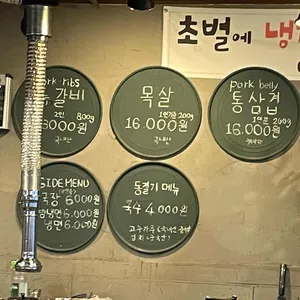 초벌에 냉
pork ribs
갈비
2인 800g
8000원
국내산
목살
1인기준 200g
16.000원
국내산
pork belly
통삼겹
1인분 200g
16.000원
SIDE MENU
국장 6000원
냉면 6.000원
냉면 6.000원
동절기 메뉴
국수 4.000원